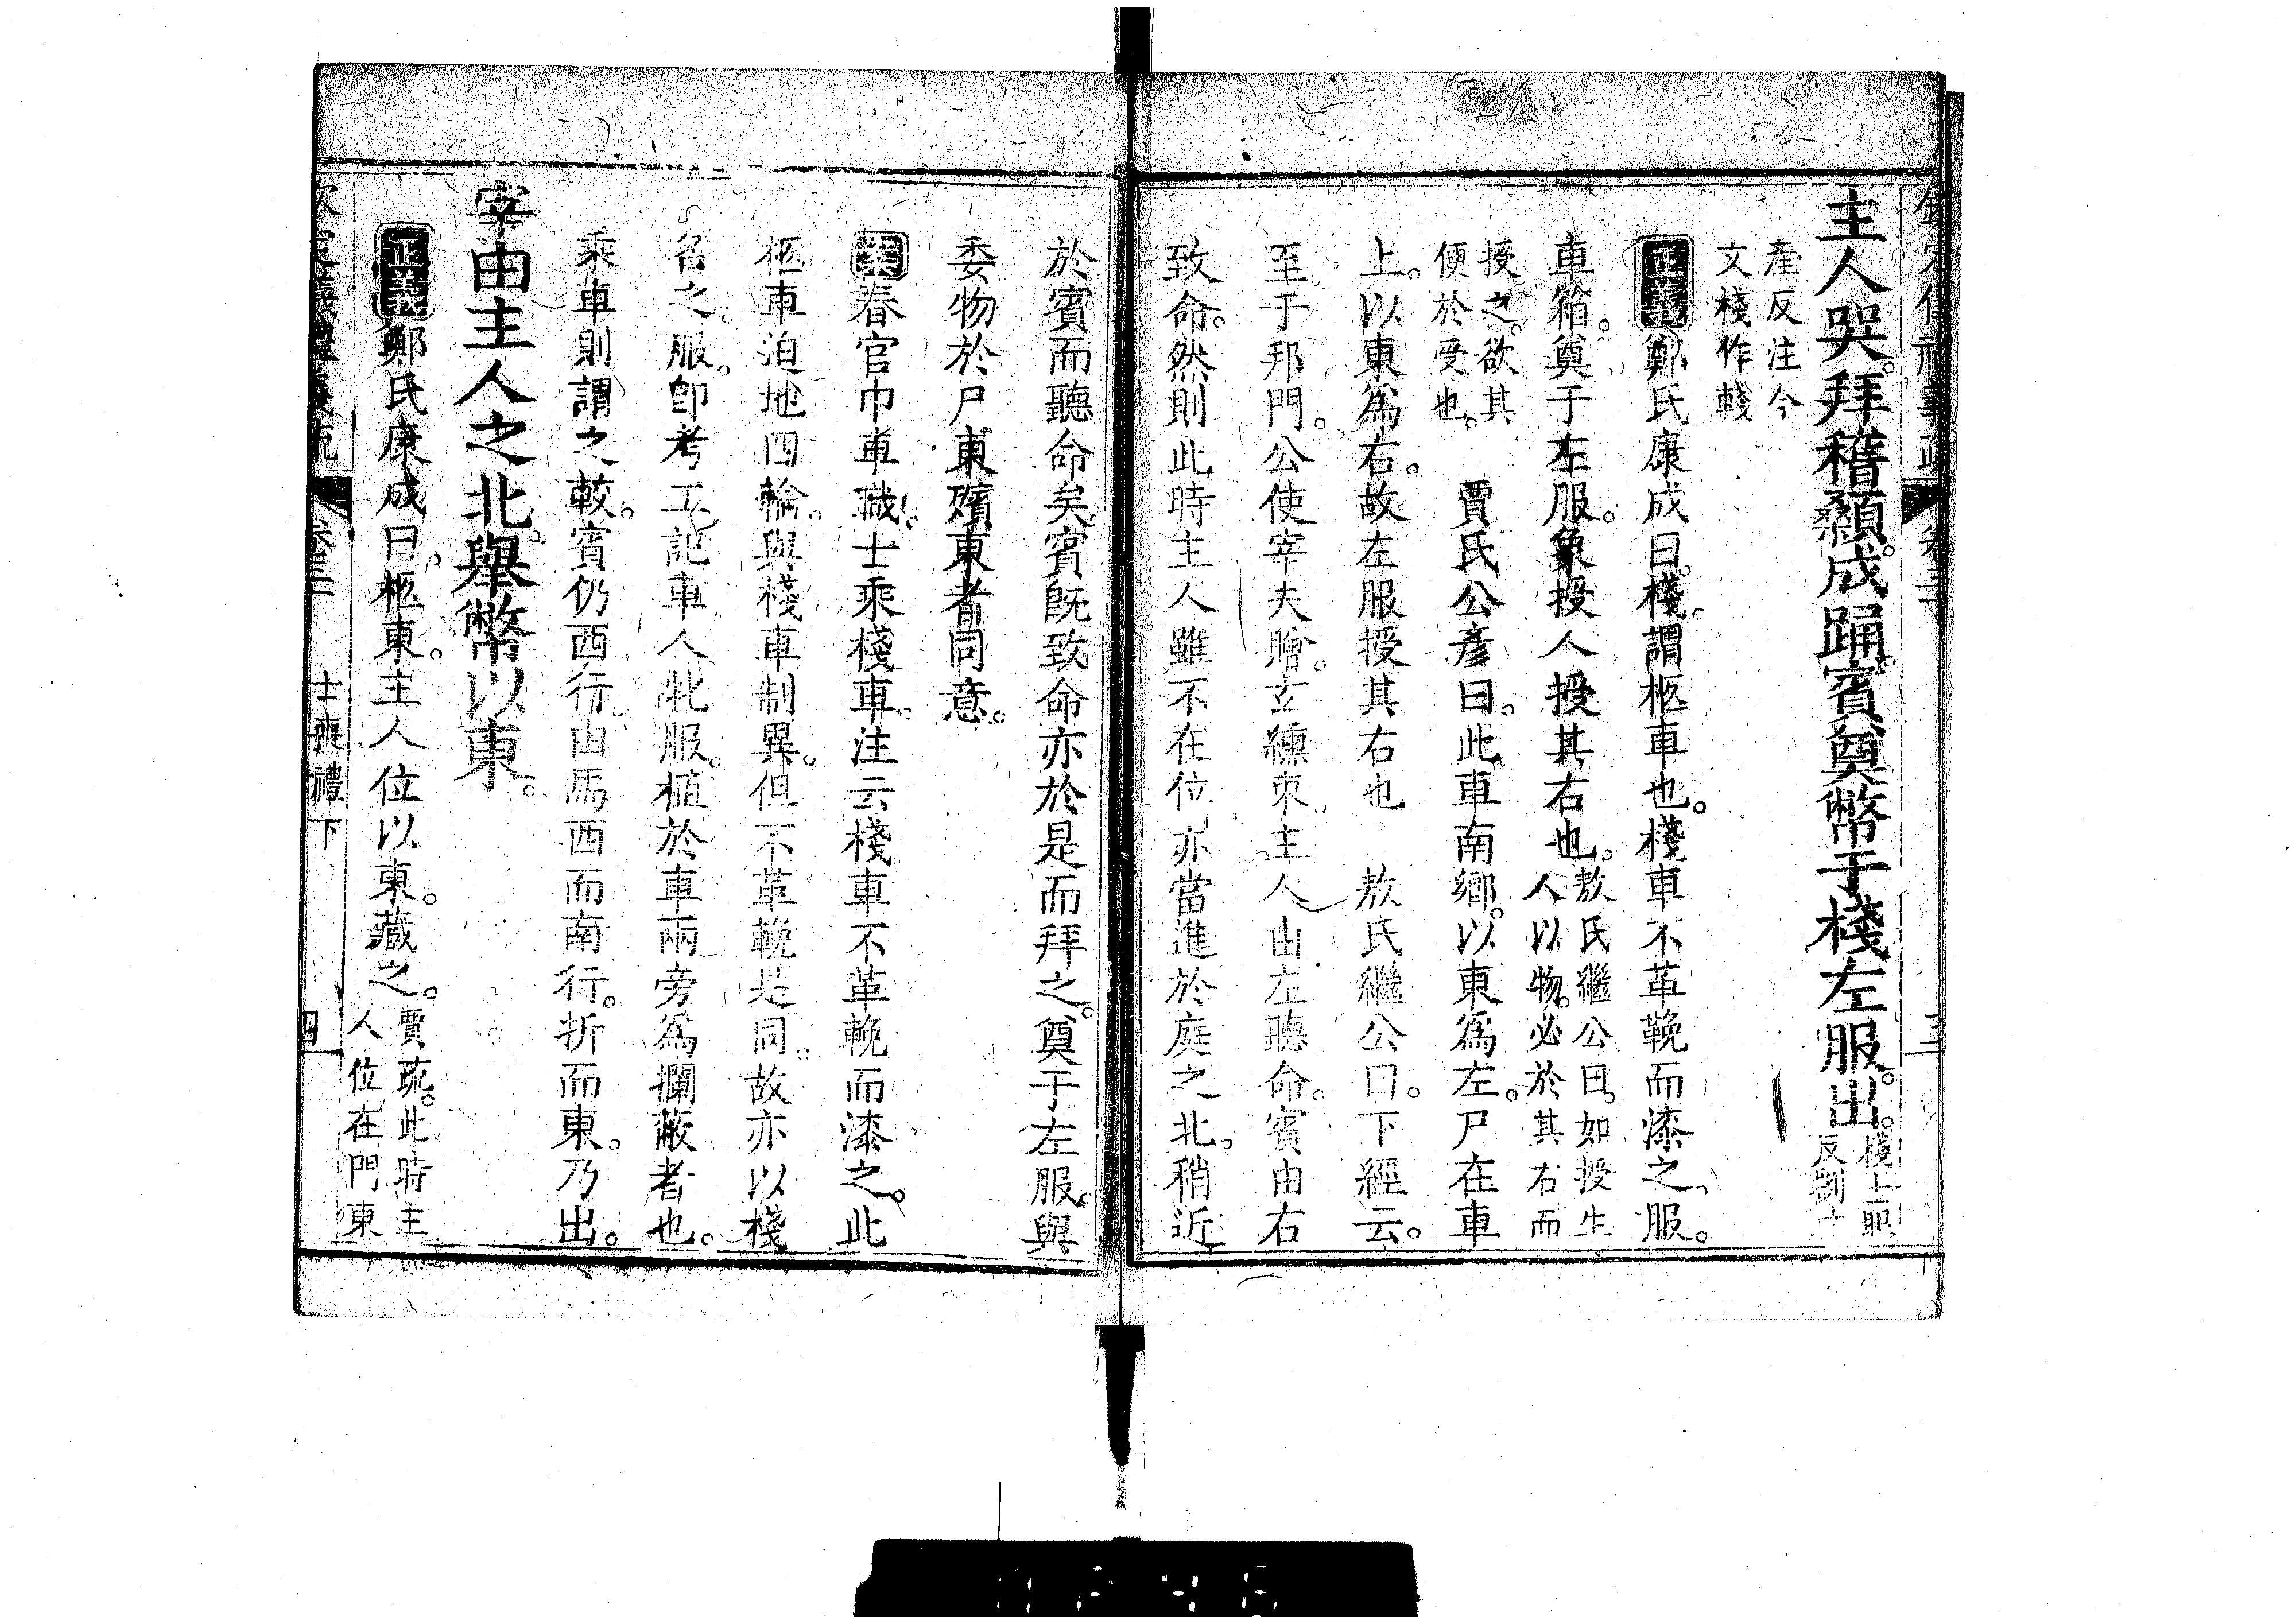 主人哭。拜稽顙。成踊。賓奠幣于棧左服。出。棧士
反劉
產反注今
文棧作輚
正義鄭氏康成曰。棧。謂柩車也。棧車不革鞔而漆之。服。
車箱。奠于左服。象授人授其右也。敖氏繼公曰。如授生
人以物。必於其右而
授之。欲其
便於受也。賈氏公彥曰。此車南鄉。以東爲左。尸在車
上。以東爲右。故左服授其右也 敖氏繼公曰。下經云。
至于邦門。公使宰夫贈。玄纁束。主人由左聽命。賓由右
致命。然則此時主人雖不在位亦當進於庭之北。稍近
於賓而聽命矣。賓旣致命亦於是而拜之。奠于左服。與
委物於尸東殯東者同意。
案春官巾車職。士乘棧車。注云棧車不革輓而漆之。此
柩車迫地四輪。與棧車制異。但不革輓是同。故亦以棧
名之。服。卽考工記車人牝服。植於車兩旁爲攔蔽者也。
乘車則謂之較。賓仍西行。由馬西而南行。折而東。乃出。
宰由主人之北。舉幣以東。
正義鄭氏康成曰。柩東。主人位以東。藏之。賈疏。此時主
人位在門東
欽定義禮義疏 卷三 士喪禮下 四